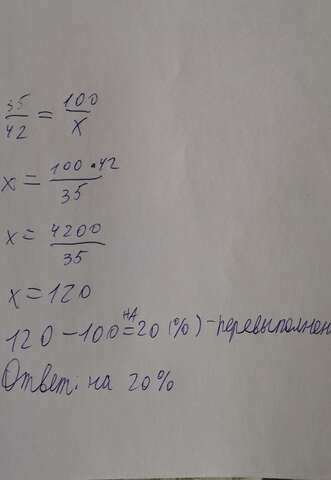 35/42 = 100/x
x = 100 · 42/35
x = 4200/35
x = 120
120 – 100 = 20 (%) – на перевыполнен
Ответ: на 20%